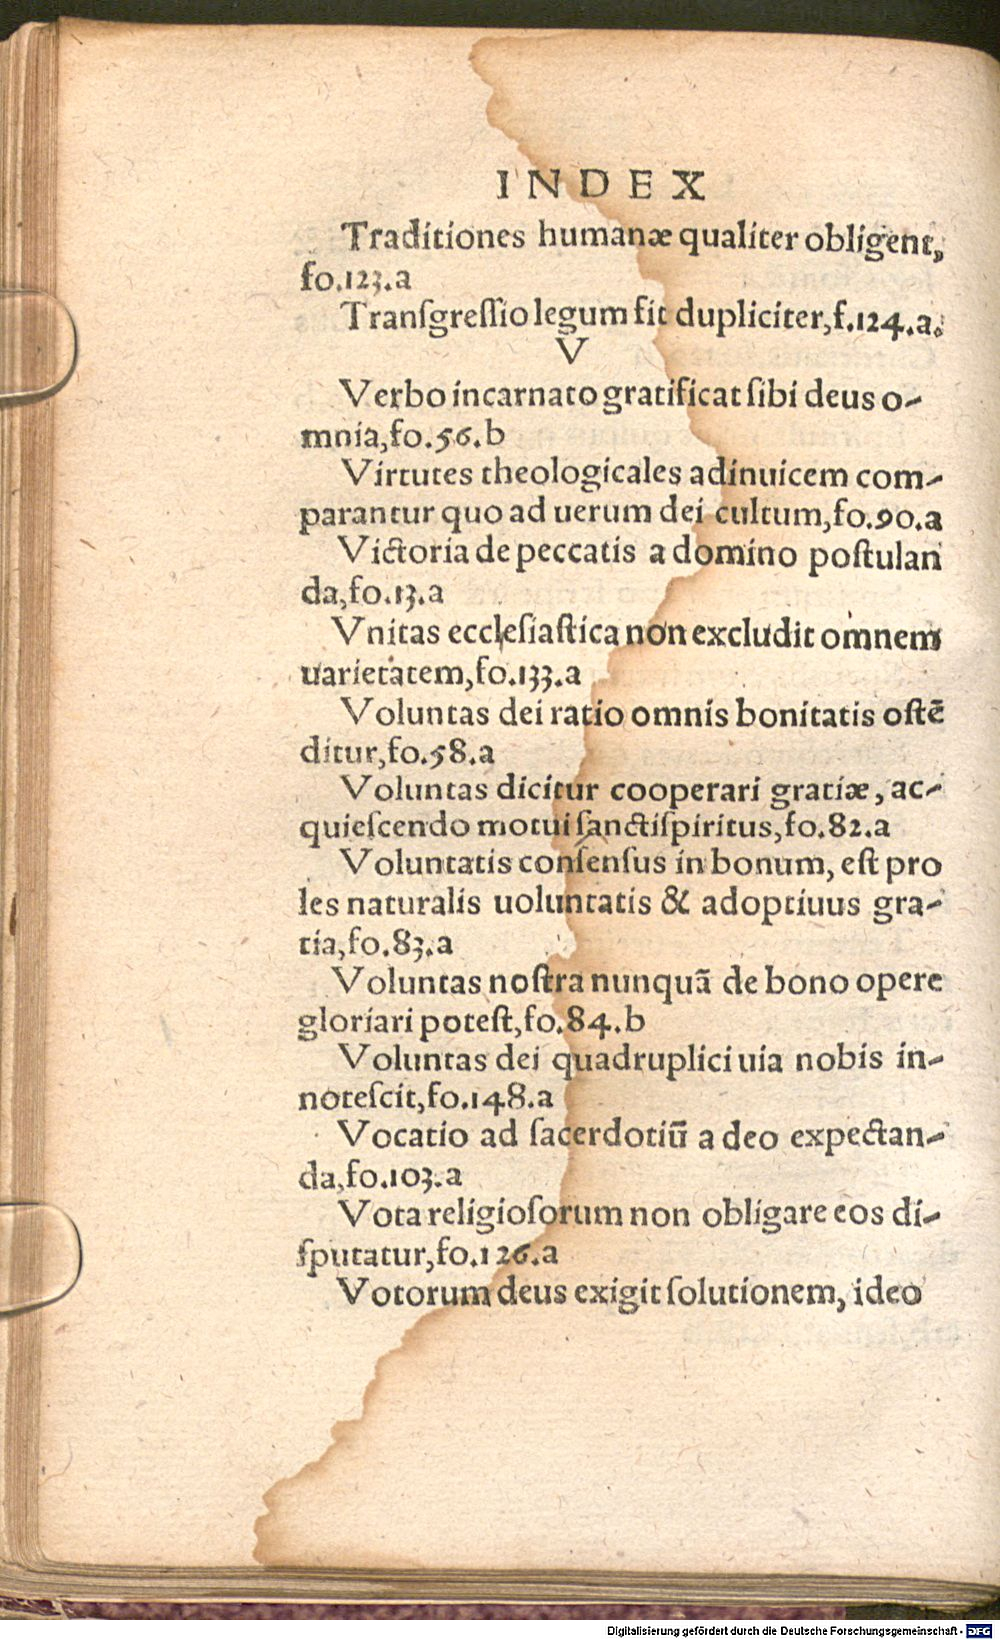 INDEX
Traditiones humanæ qualiter obligent,
fo.123.a
Tranſgreſſio legum fit dupliciter,f.124.a.
V
Verbo incarnato gratificat ſibi deus o-
mnia,fo.56.b
Virtutes theologicales adinuicem com-
parantur quo ad uerum dei cultum,fo.90.a
Victoria de peccatis a domino poſtulan
da,fo.13.a
Vnitas eccleſiaſtica non excludit omnem
uarietatem,fo.133.a
Voluntas dei ratio omnis bonitatis oſtē
ditur,fo.58.a
Voluntas dicitur cooperari gratiæ, ac-
quieſcendo motui ſanctiſpiritus,fo.82.a
Voluntatis conſenſus in bonum, eſt pro
les naturalis uoluntatis & adoptiuus gra-
tia,fo.83.a
Voluntas noſtra nunquã de bono opere
gloriari poteſt,fo.84.b
Voluntas dei quadruplici uia nobis in-
noteſcit,fo.148.a
Vocatio ad ſacerdotiū a deo expectan-
da,fo.103.a
Vota religioſorum non obligare eos di-
ſputatur,fo.126.a
Votorum deus exigit ſolutionem, ideo
Digitalisierung gefördert durch die Deutsche Forschungsgemeinschaft - DFG